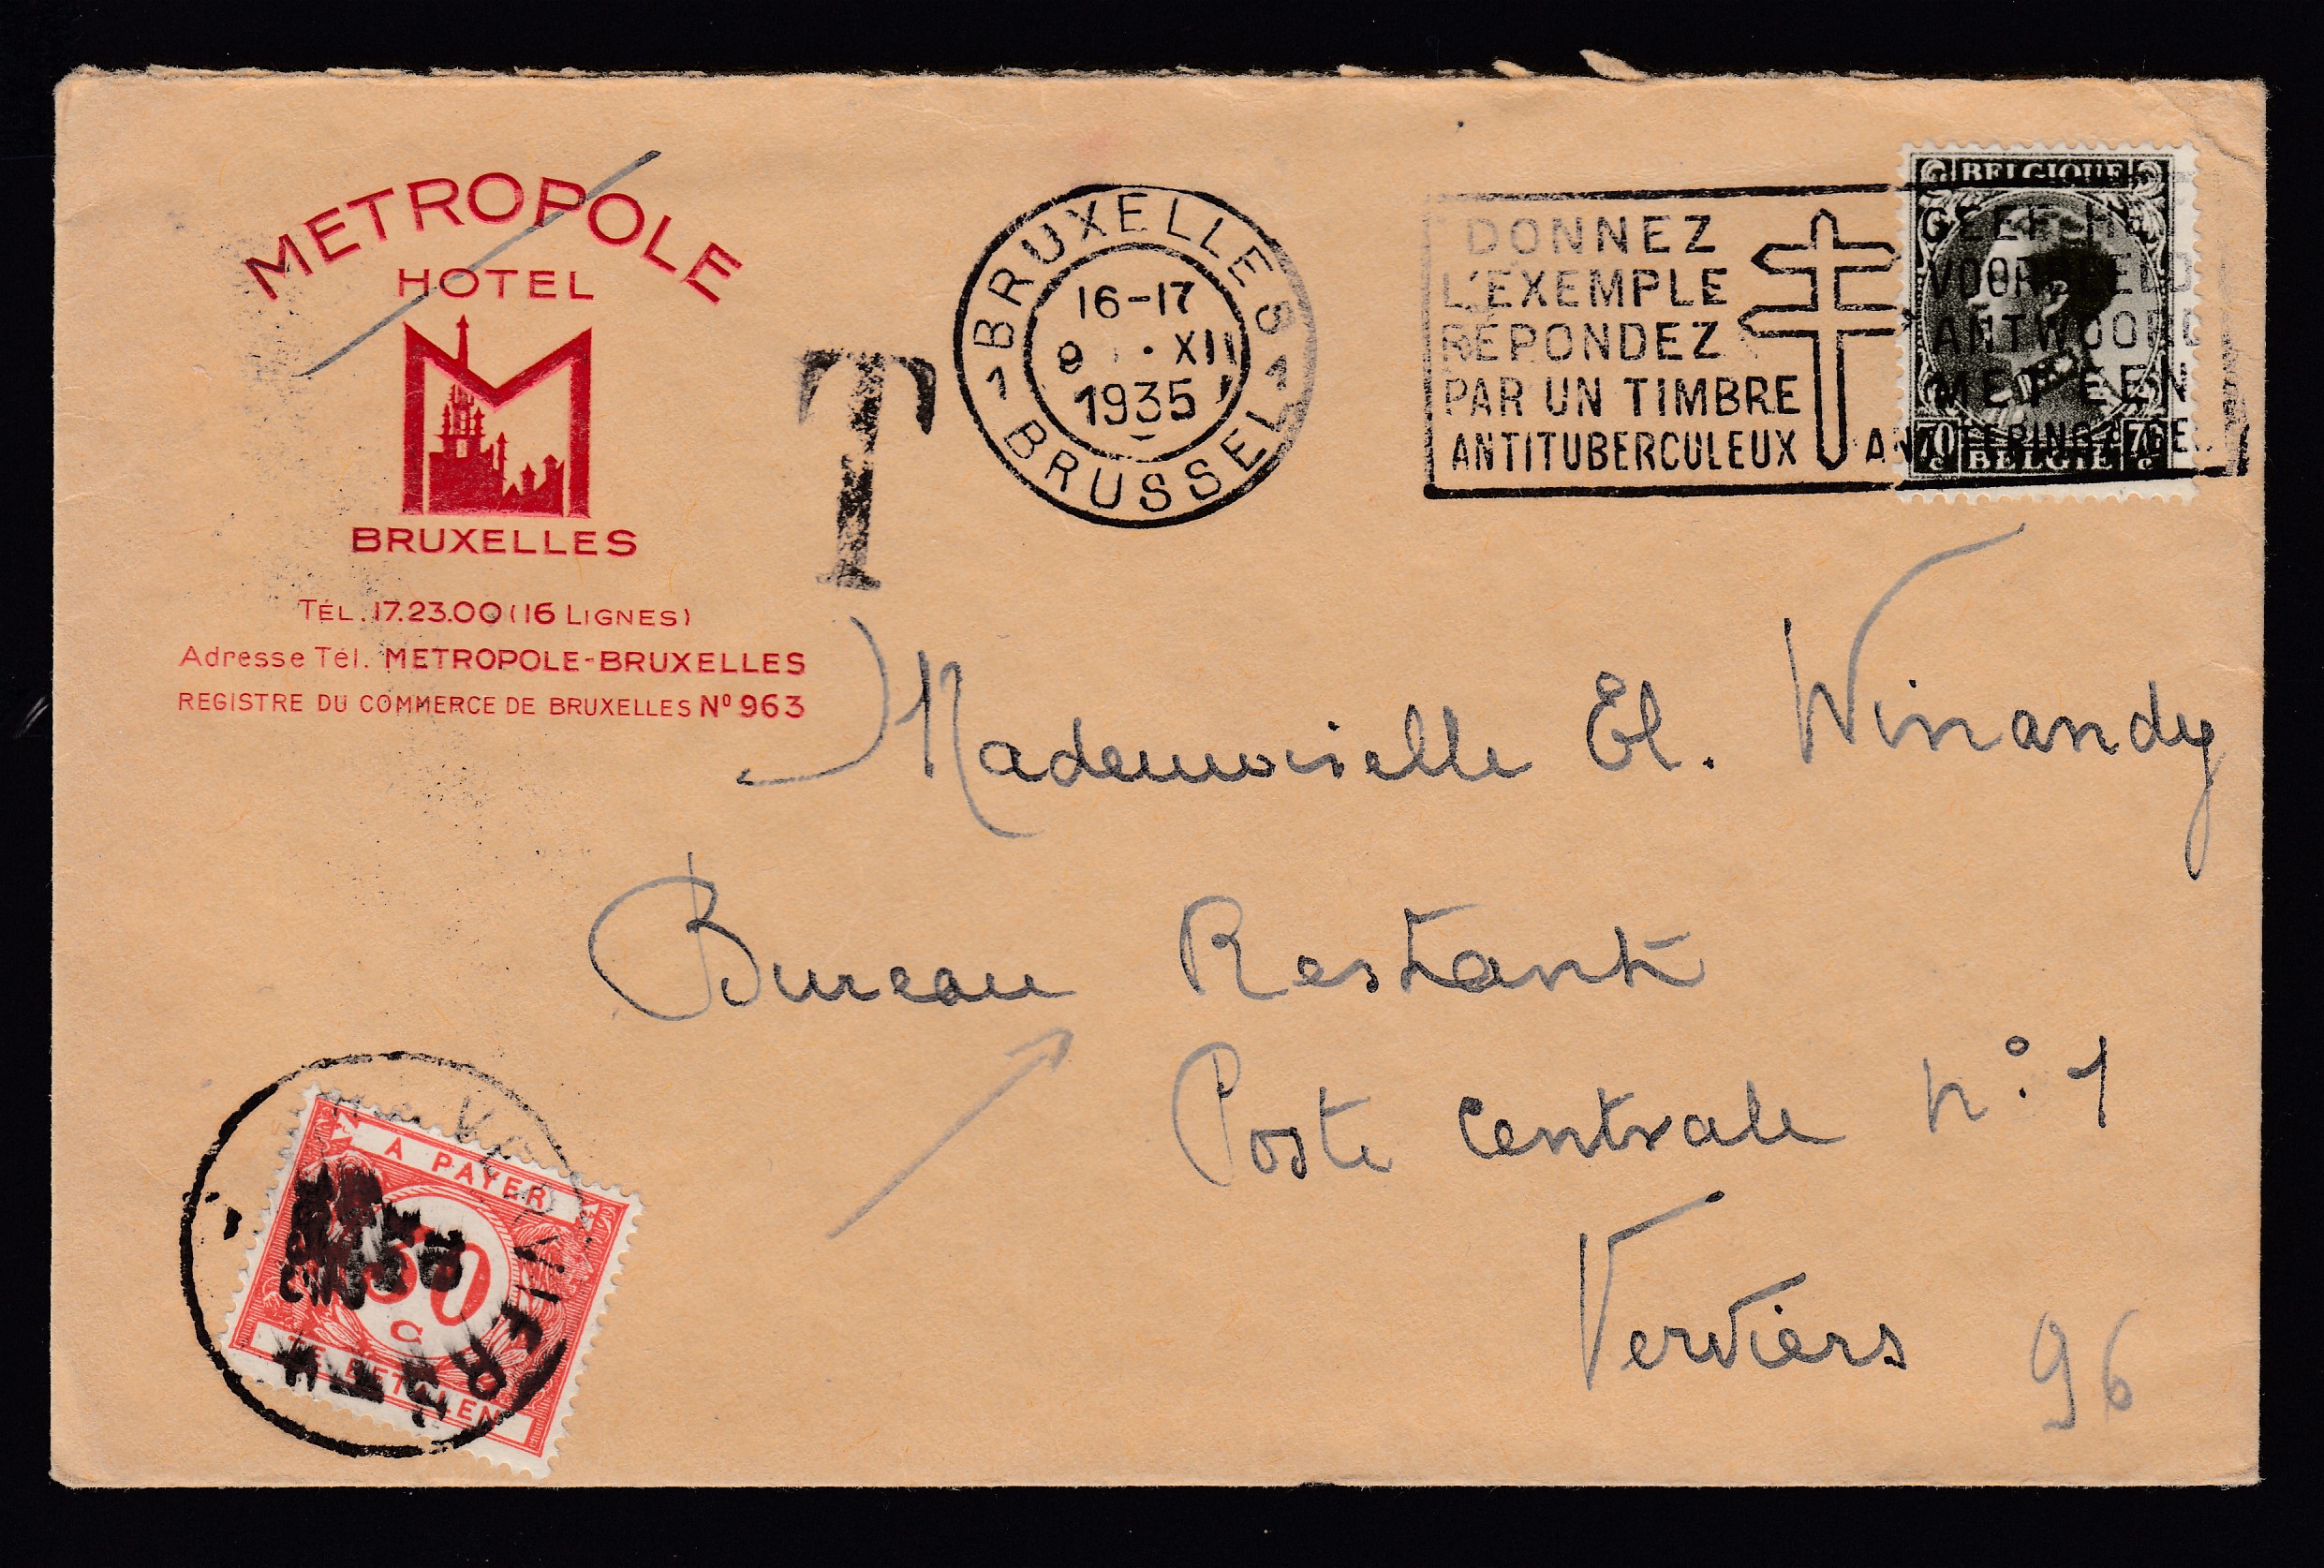 METROPOLE
HOTEL
BRUXELLES
TÉL. 17.23.00 (16 LIGNES)
Adresse Tél. METROPOLE-BRUXELLES
REGISTRE DU COMMERCE DE BRUXELLES Nº 963
T
1 BRUXELLES 1
16-17
9 XII
1935
BRUSSEL
DONNEZ
L'EXEMPLE
RÉPONDEZ
PAR UN TIMBRE
ANTITUBERCULEUX
BELGIQUE
GEEF HET
VOORBEELD
ANTWOORD
MET EEN
70 c BELGIË 70 c
Mademoiselle El. Winandy
Bureau Restante
Poste Centrale nº 1
Verviers
96
A PAYER
50
C
TE BETALEN
VERVIERS